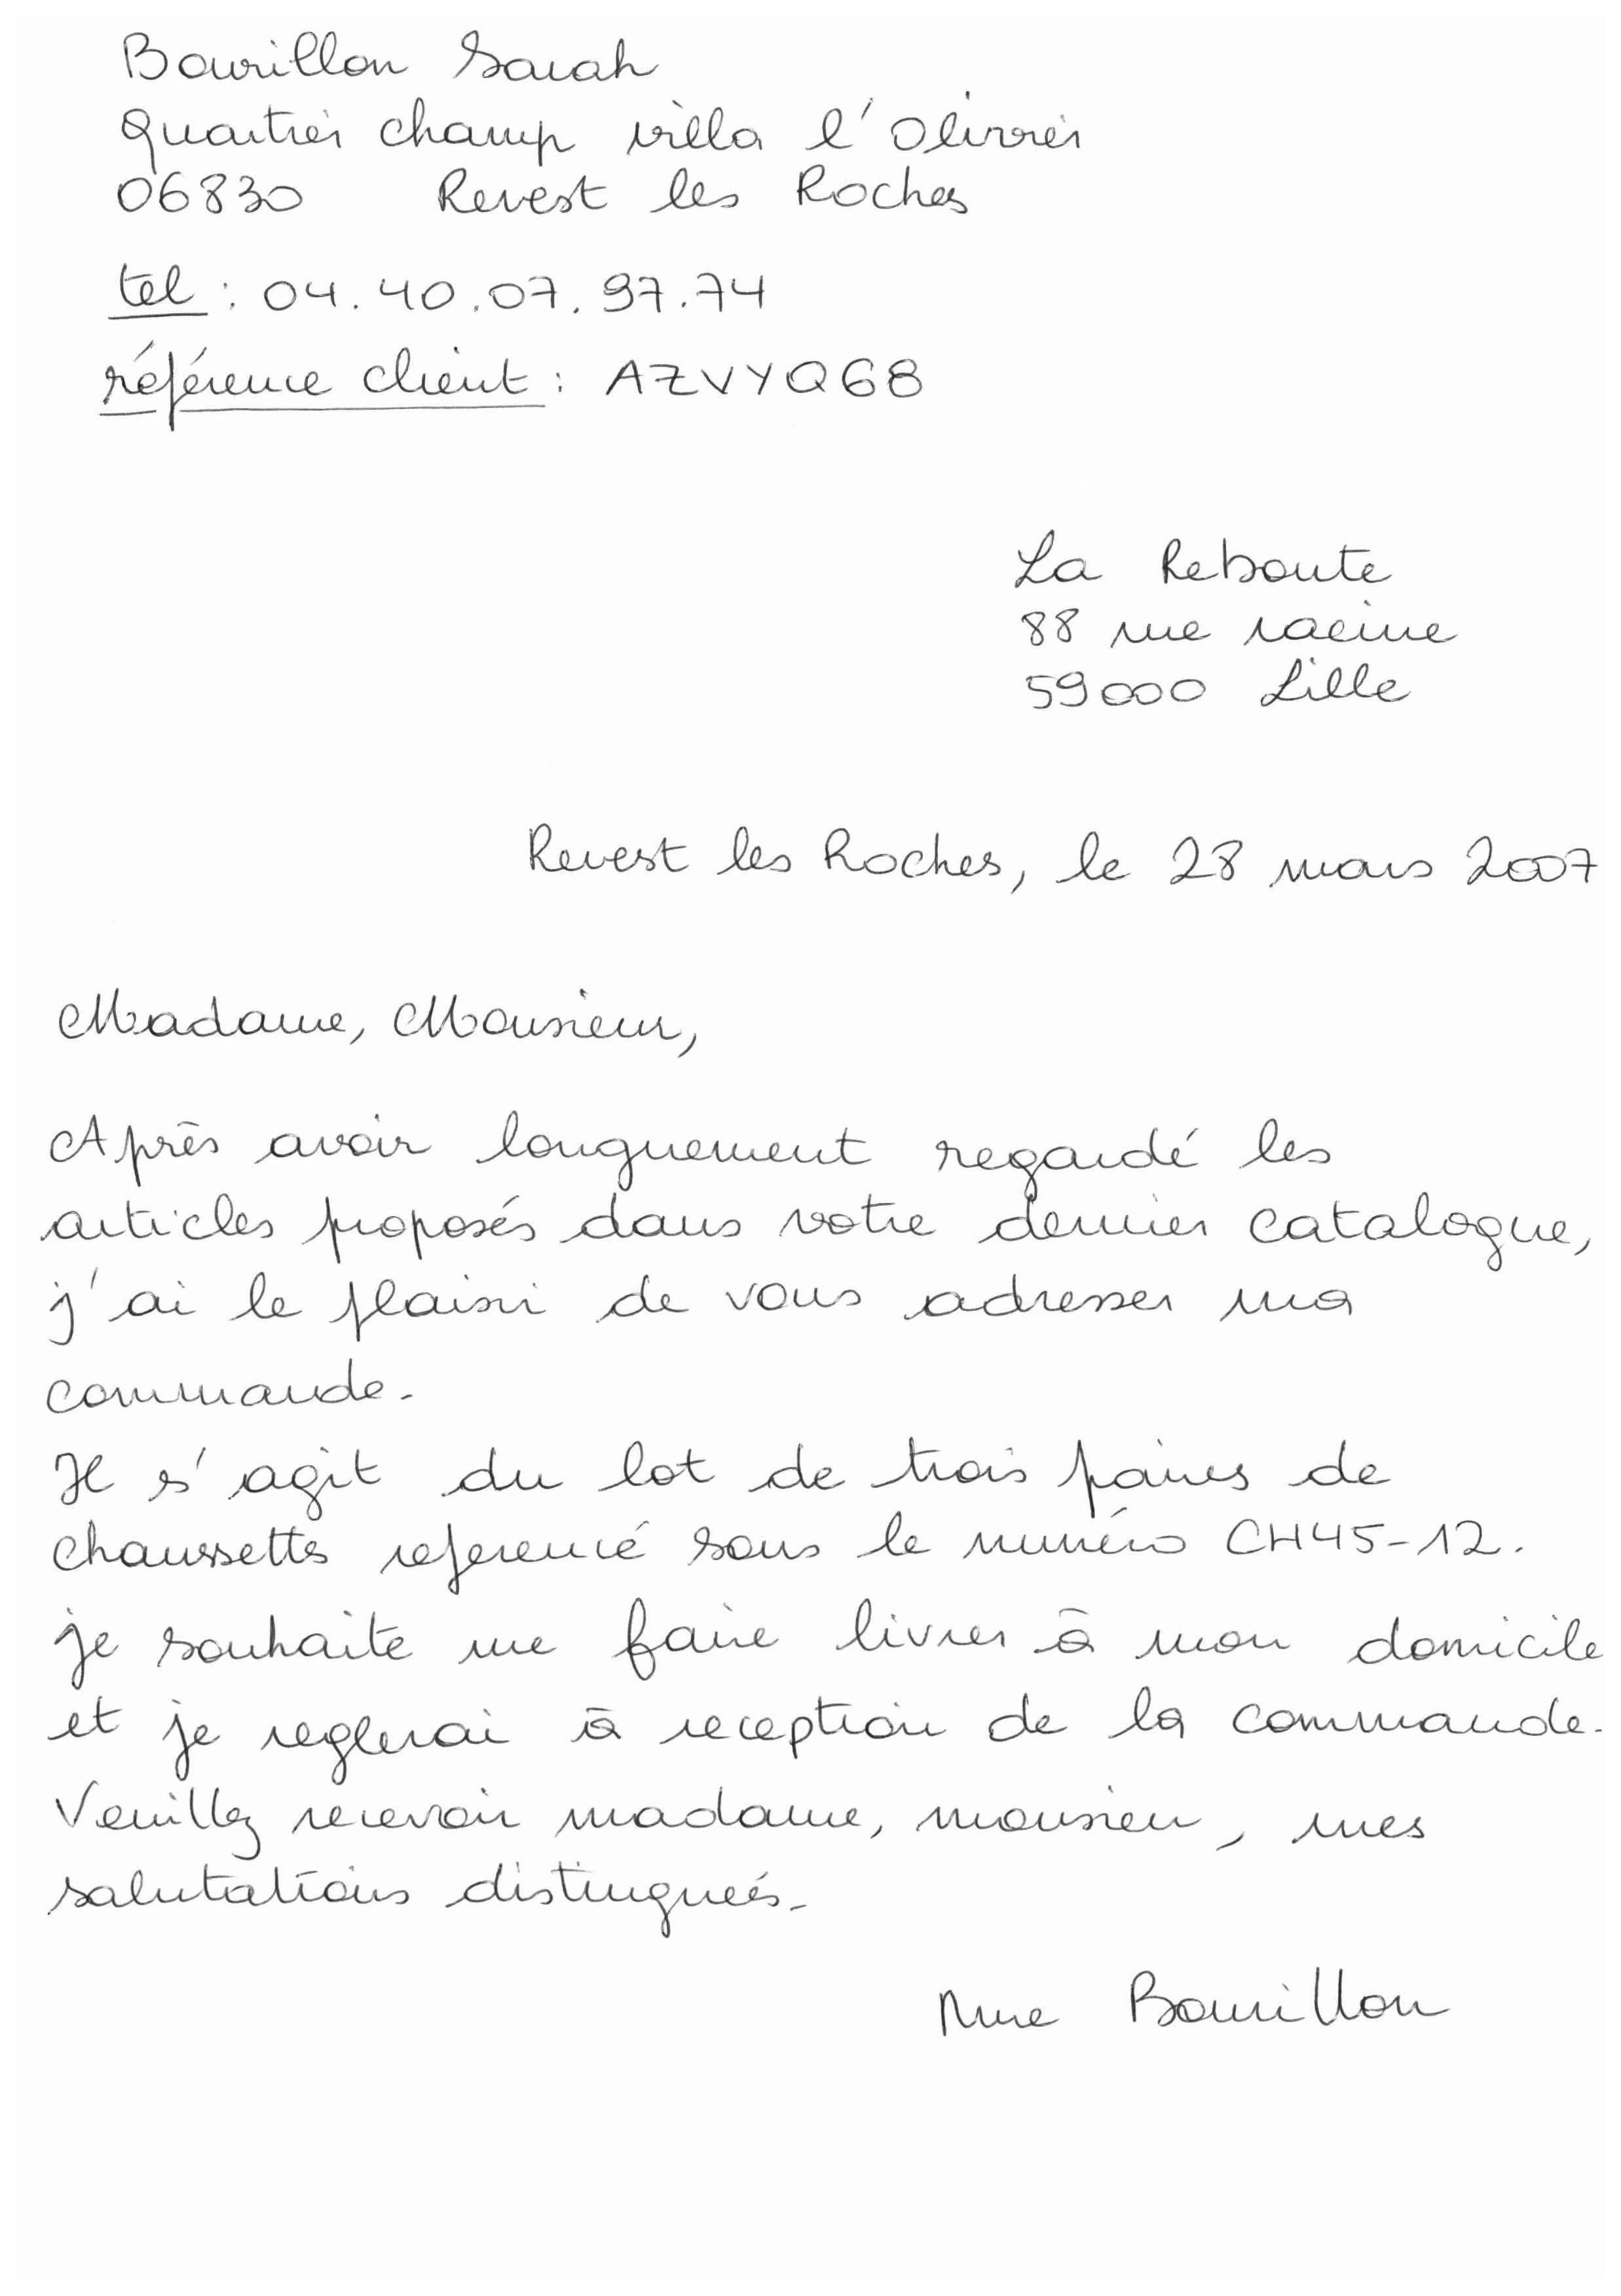 Bourillon Sarah
Quartier champ villa l'Olivier
06830 Revest les Roches
tel : 04.40.07.97.74
référence client : AZVYQ68
La Reboute
88 rue racine
59000 Lille
Revest les Roches, le 28 mars 2007
Madame, Monsieur,
Après avoir longuement regardé les
articles proposés dans votre dernier catalogue,
j'ai le plaisir de vous adresser ma
commande.
Il s'agit du lot de trois paires de
chaussettes referencé sous le numéro CH45-12.
je souhaite me faire livrer à mon domicile
et je reglerai à reception de la commande.
Veuillez recevoir madame, monsieur, mes
salutations distinguées.
Mme Bourillon